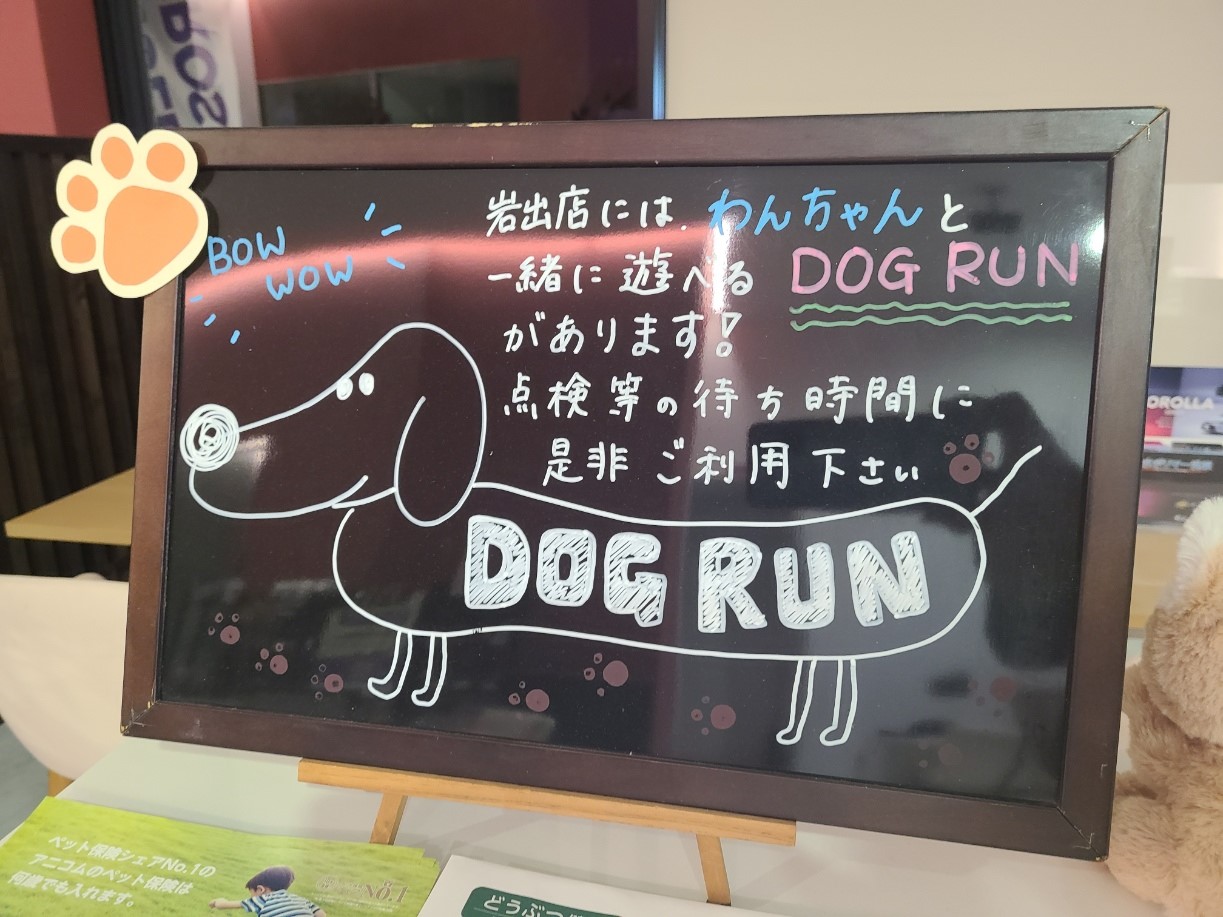 BOW
WOW
岩出店には、わんちゃんと
一緒に遊べる DOG RUN
があります!
点検等の待ち時間に
是非ご利用下さい
DOG RUN
OROLLA
ペット保険シェアNo.1の
アニコムのペット保険は
何歳でも入れます。
No.1
どうぶつ